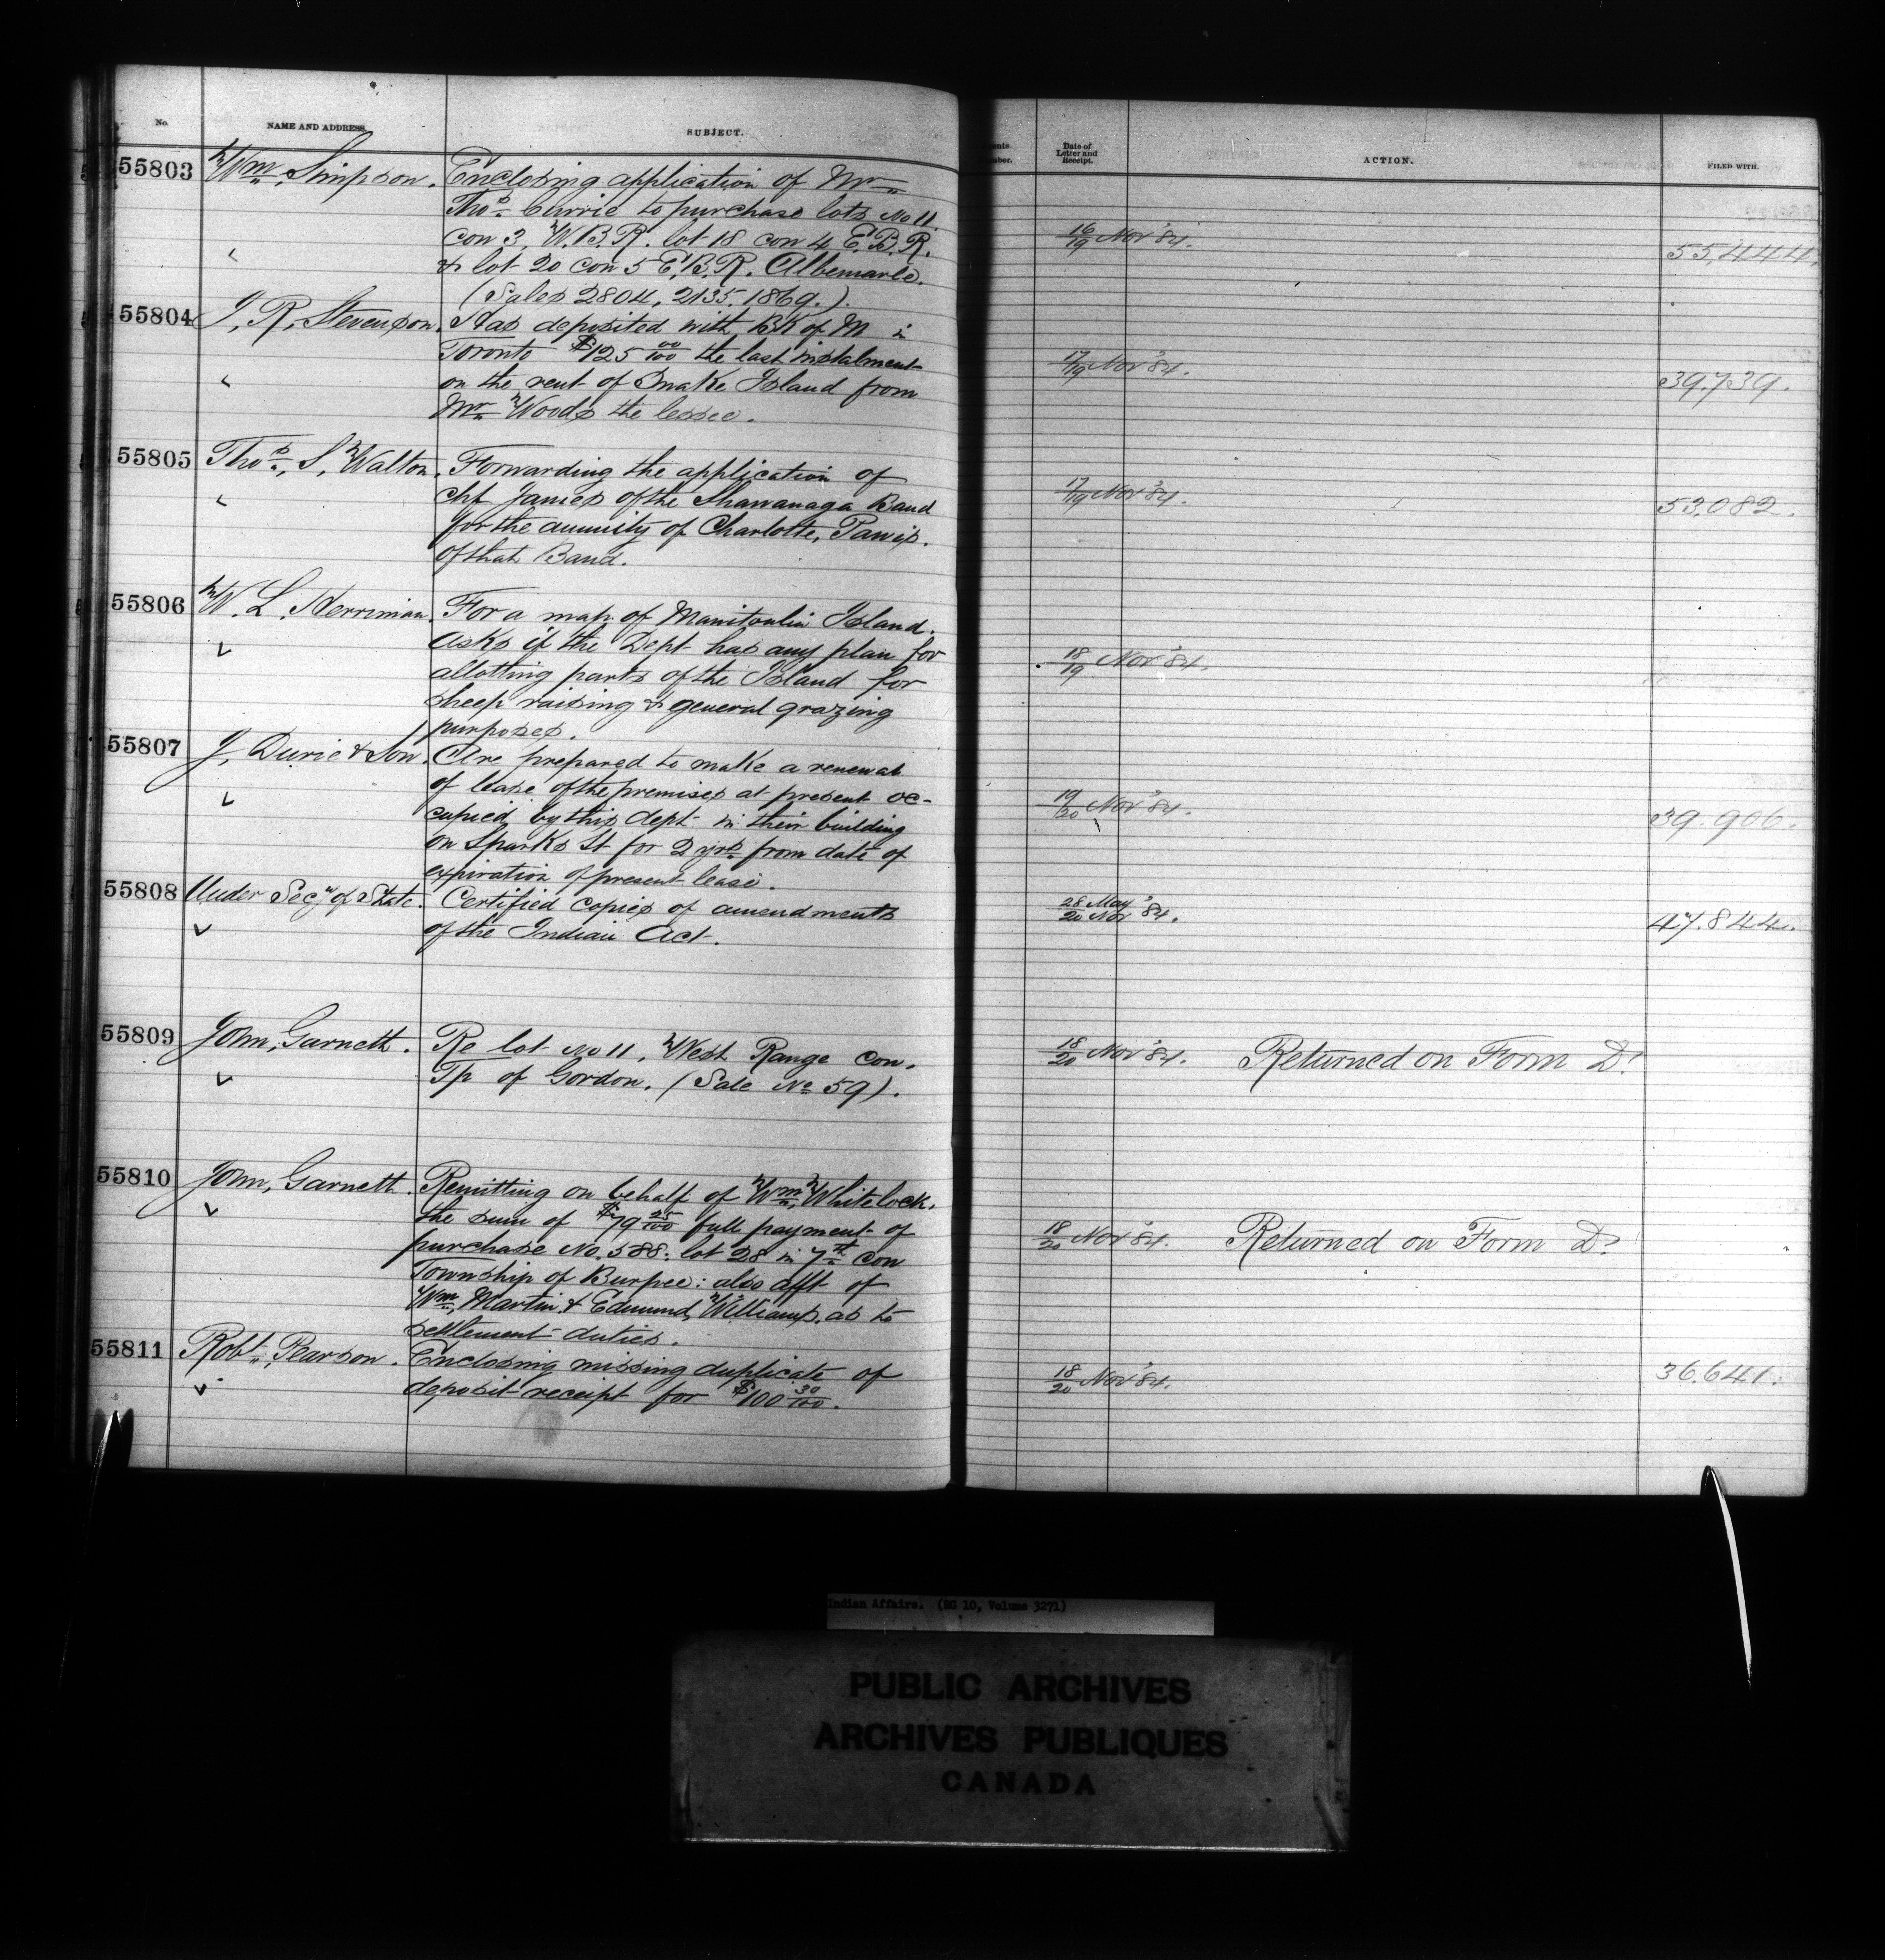 No. NAME AND ADDRESS. SUBJECT.
55803 Wm. Simpson. Enclosing application of Mr.
Thos. Currie to purchase lots No 11.
con 3, W.B.R. lot 18 con 4 E.B.R.
& lot 20 con 5 E.B.R. Albemarle.
(Sales 2804, 2135, 1869.).
55804 J. R. Stevenson. Has deposited with BK of M in
Toronto $125 00/100 the last instalment
on the rent of Snake Island from
Mr. Woods the lessee.
55805 Thos. S. Walton. Forwarding the application of
Chf James of the Shawanaga Band
for the annuity of Charlotte, Pawis.
of that Band.
55806 W. L. Herriman. For a map of Manitoulin Island.
Asks if the Dept has any plan for
allotting parts of the Island for
sheep raising & general grazing
purposes.
55807 J. Durie & Son. Are prepared to make a renewal
of lease of the premises at present oc-
cupied by this dept in their building
on Sparks St for 2 yrs. from date of
expiration of present lease.
55808 Under Secy of State. Certified copies of amendments
of the Indian Act.
55809 John, Garnett. Re lot No 11, West Range con.
Tp of Gordon. (Sale No 59).
55810 John, Garnett. Remitting on behalf of Wm. Whitelock.
the sum of $79 25/100 full payment of
purchase No. 588: lot 28 in 7th con
Township of Burpee: also afft of
Wm. Martin & Edmund, Williams, as to
settlement duties.
55811 Robt. Pearson. Enclosing missing duplicate of
deposit receipt for $100 30/100.
Date of
Letter and
Receipt. ACTION. FILED WITH.
16/19 Nov '84. 55,444.
17/19 Nov '84. 39,739.
17/19 Nov '84. 53,082.
18/19 Nov '84.
19/20 Nov '84. 39.906.
28 May
20 Nov '84. 47.844.
18/20 Nov '84. Returned on Form D.
18/20 Nov '84. Returned on Form D.
18/20 Nov '84. 36.641.
Indian Affairs. (RG 10, Volume 3271)
PUBLIC ARCHIVES
ARCHIVES PUBLIQUES
CANADA